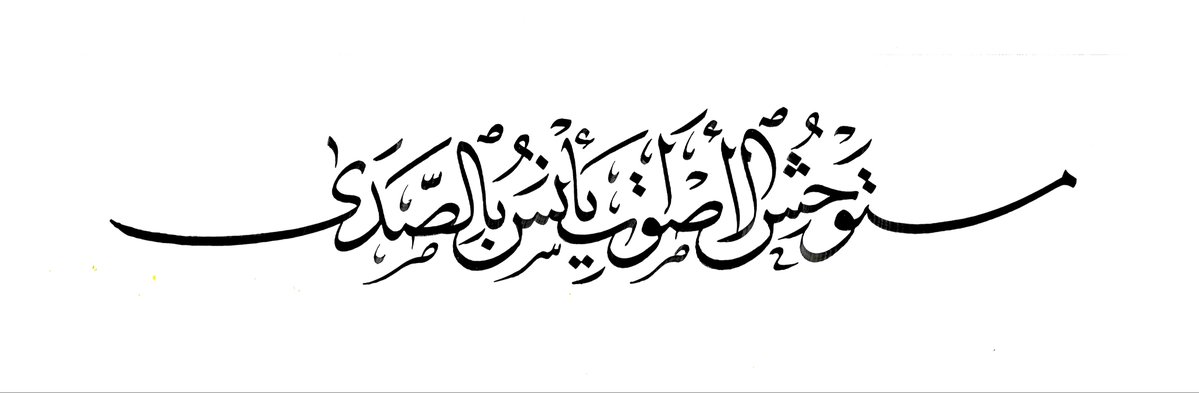 مستَوْحشُ الأَصْوَات يَأْنَسُ بالصَّدَى